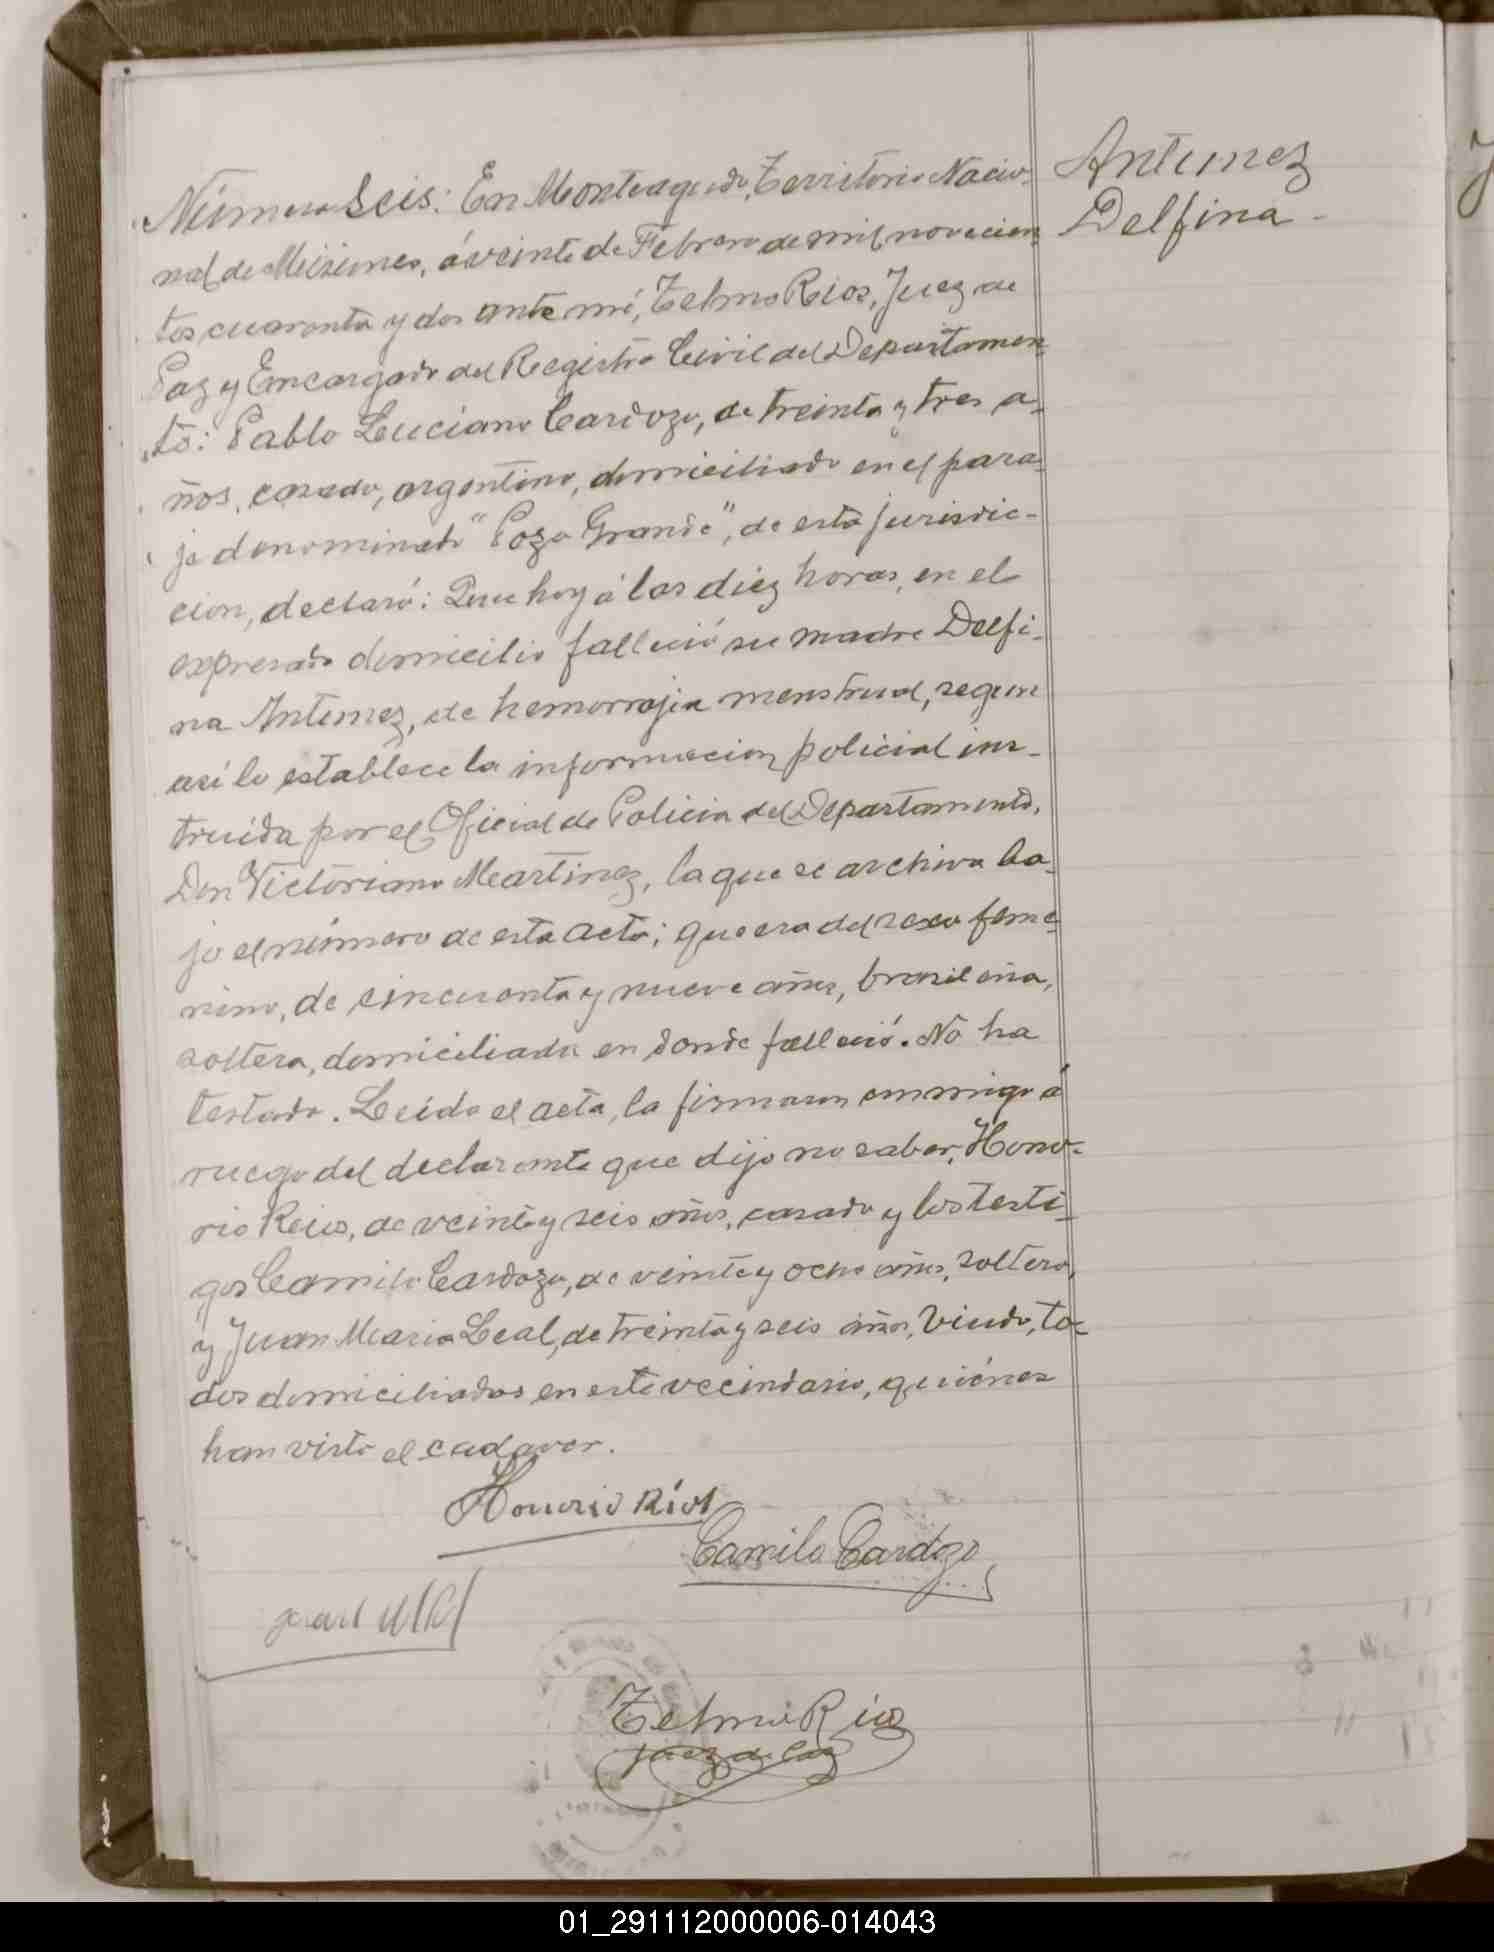 Antunez
Delfina -
Número Seis: En Monteagudo, Territorio Nacio-
nal de Misiones, á veinte de Febrero de mil novecien
tos cuarenta y dos ante mí, Telmo Rios, Juez de
Paz y Encargado del Registro Civil del Departamen
to: Pablo Luciano Cardozo, de treinta y tres a-
ños, casado, argentino, domiciliado en el para-
je denominado "Pozo Grande", de esta jurisdic-
cion, declaró: Que hoy á las diez horas, en el
expresado domicilio falleció su madre Delfi-
na Antunez, de hemorrajia menstrual, segun
asi lo establece la informacion policial ins-
truida por el Oficial de Policia del Departamento,
Don Victoriano Martinez, la que se archiva ba-
jo el número de esta acta; que era del sexo feme-
nino, de cincuenta y nueve años, brasileña,
soltera, domiciliada en donde falleció. No ha
testado. Leida el acta, la firmaron conmigo á
ruego del declarante que dijo no saber, Hono-
rio Rios, de veinte y seis años, casado y los testi-
gos Camilo Cardozo, de veinte y ocho años, soltero,
y Juan Maria Leal, de treinta y seis años, viudo, to-
dos domiciliados en este vecindario, quiénes
han visto el cadaver.
Honorio Ríos
Camilo Cardozo
Telmo Rios
Juez de Paz
01_291112000006-014043